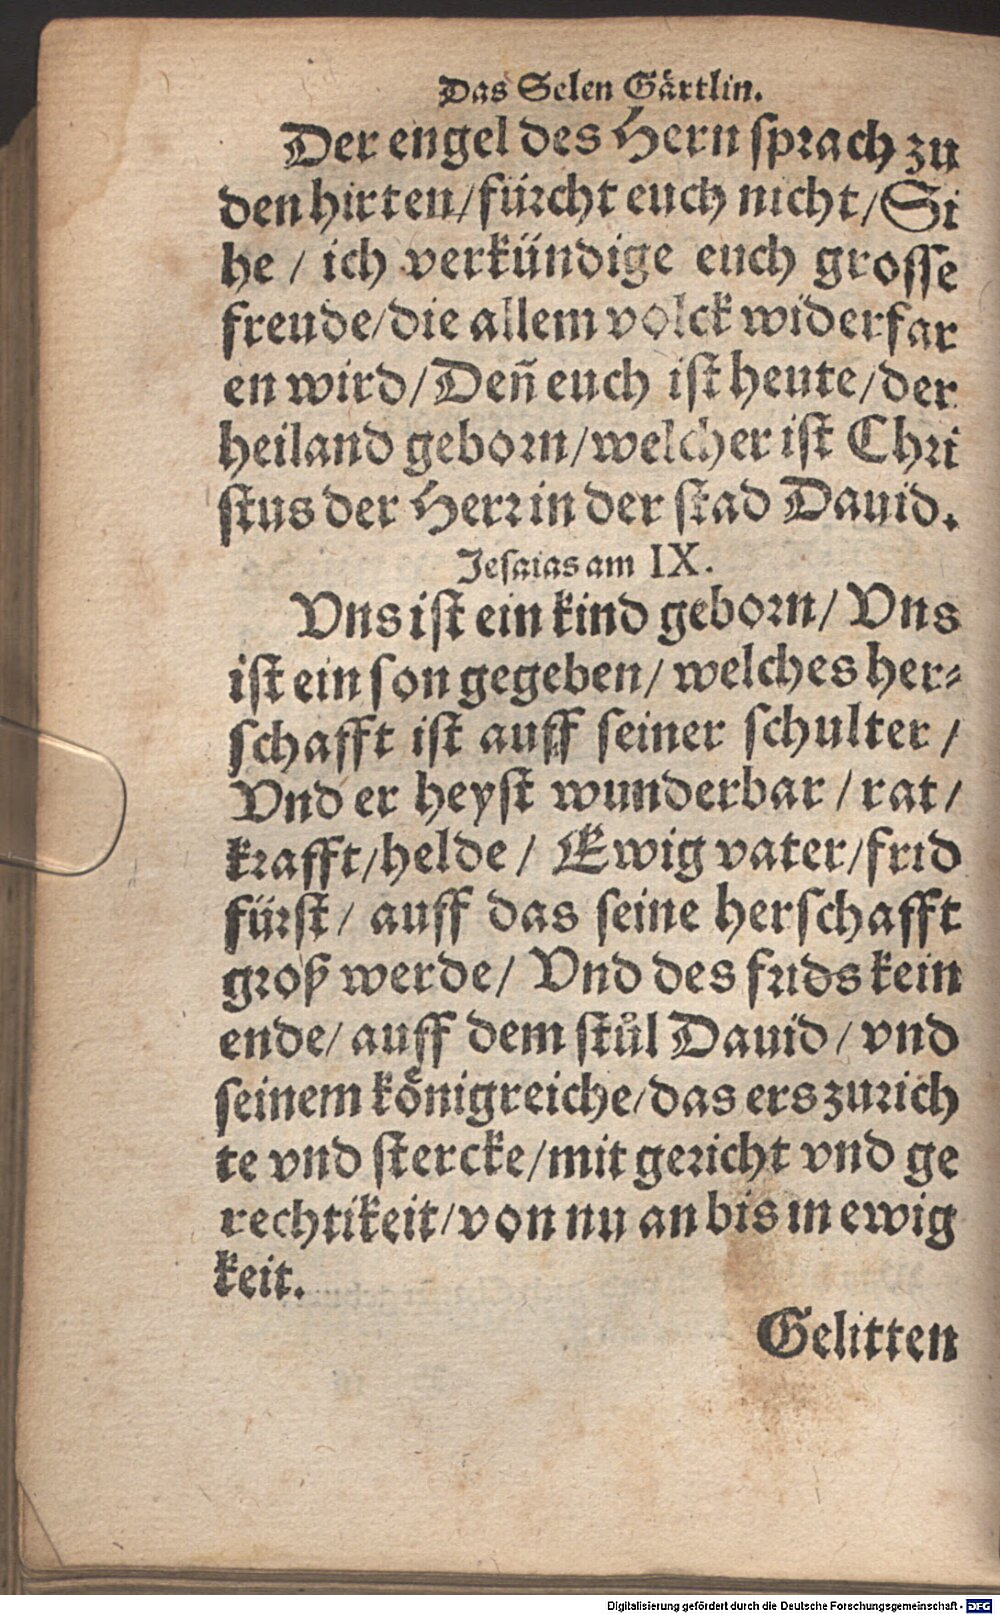 Das Selen Gärtlin.
Der engel des Hern sprach zu
den hirten/fürcht euch nicht/Si
he / ich verkündige euch grosse
freude/die allem volck widerfar
en wird/Deñ euch ist heute/der
heiland geborn/welcher ist Chri
stus der Herr in der stad Dauid.
Jesaias am IX.
Vns ist ein kind geborn/ Vns
ist ein son gegeben/ welches her⸗
schafft ist auff seiner schulter /
Vnd er heyst wunderbar / rat/
krafft/helde / Ewig vater/frid
fürst/ auff das seine herschafft
groß werde/ Vnd des frids kein
ende/ auff dem stůl Dauid/ vnd
seinem königreiche/das ers zurich
te vnd stercke/mit gericht vnd ge
rechtikeit/von nu an bis in ewig
keit.
Gelitten
Digitalisierung gefördert durch die Deutsche Forschungsgemeinschaft - DFG